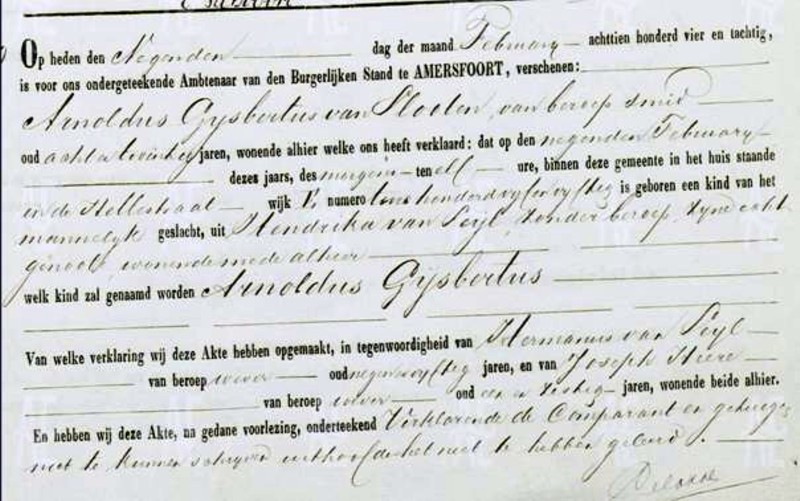 Op heden den Negenden dag der maand February achttien honderd vier en tachtig,
is voor ons ondergeteekende Ambtenaar van den Burgerlijken Stand te AMERSFOORT, verschenen:
Arnoldus Gysbertus van Slooten, van beroep smid
oud acht en twintig jaren, wonende alhier welke ons heeft verklaard: dat op den negenden February
dezes jaars, des morgens ten elf ure, binnen deze gemeente in het huis staande
in de Hellestraat wijk numero honderd vyf en vyftig is geboren een kind van het
mannelyk geslacht, uit Hendrika van Seyl, zonder beroep, zyne echt
genoote wonende mede alhier
welk kind zal genaamd worden Arnoldus Gijsbertus
Van welke verklaring wij deze Akte hebben opgemaakt, in tegenwoordigheid van Hermanus van Seyl
van beroep wever oud negen en vyftig jaren, en van Joseph
van beroep wever oud een en zestig jaren, wonende beide alhier.
En hebben wij deze Akte, na gedane voorlezing, onderteekend Verklarende de Comparant en getuigen
niet te kunnen schryven uithoofde het niet te hebben geleerd.